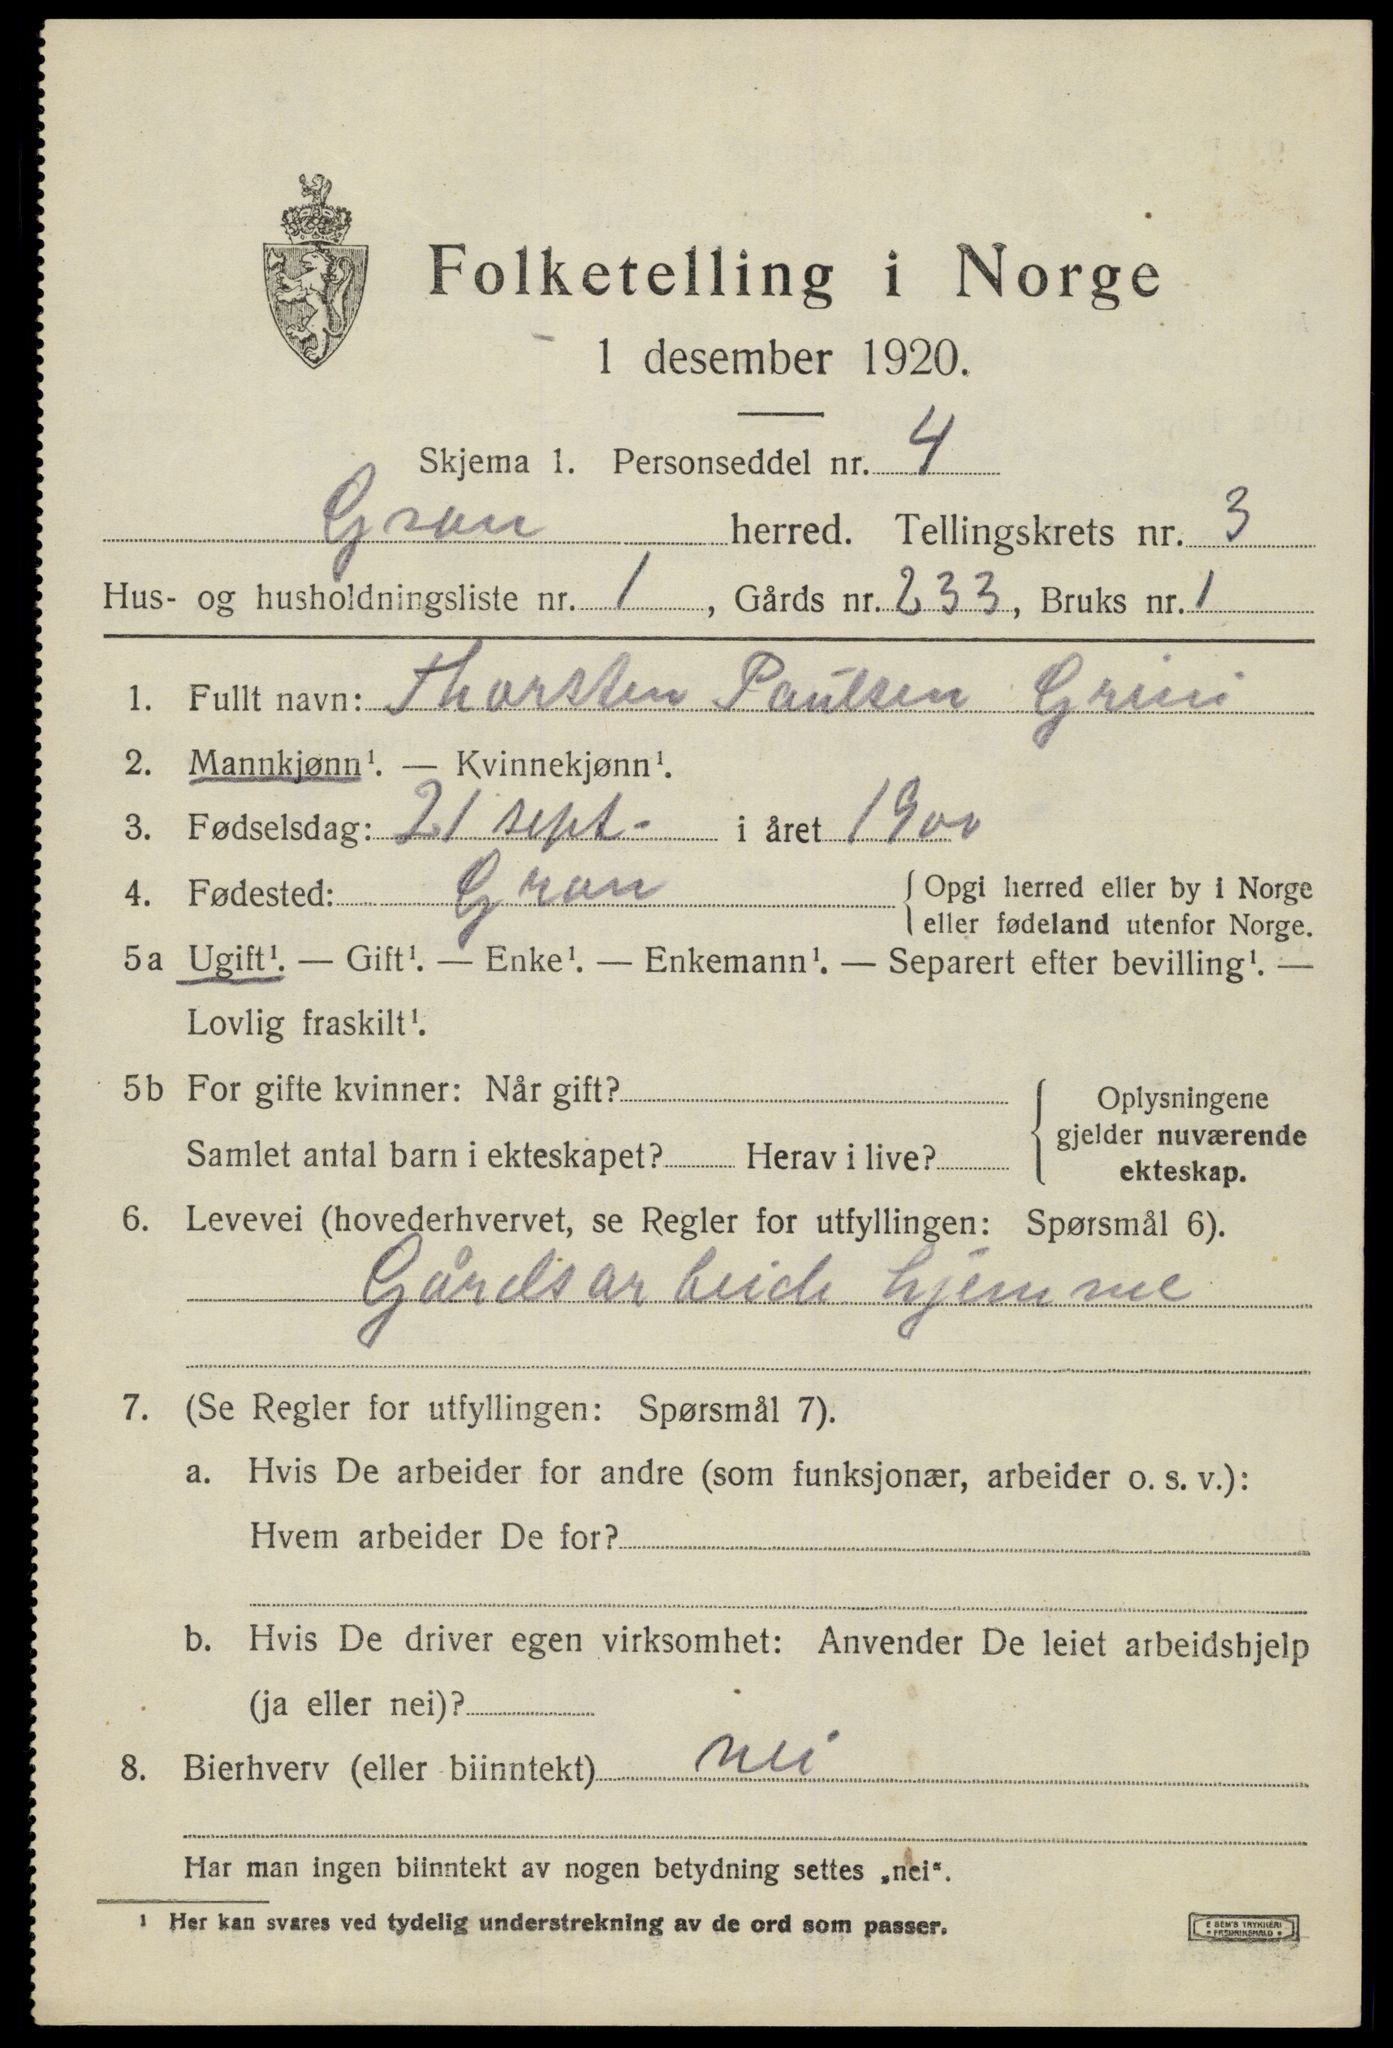 Folketelling i Norge
1 desember 1920.
Skjema 1. Personseddel nr. 4
Gran herred. Tellingskrets nr. 3
Hus- og husholdningsliste nr. 1, Gårds nr. 233, Bruks nr. 1
1. Fullt navn: Thorsten Paulsen Grini
2. Mannkjønn¹. — Kvinnekjønn¹.
3. Fødselsdag: 21 sept. i året 1900
4. Fødested: Gran { Opgi herred eller by i Norge
eller fødeland utenfor Norge.
5a Ugift¹. — Gift¹. — Enke¹. — Enkemann¹. — Separert efter bevilling¹. —
Lovlig fraskilt¹.
5b For gifte kvinner: Når gift?
Samlet antal barn i ekteskapet? Herav i live?
Oplysningene
gjelder nuværende
ekteskap.
6. Levevei (hovederhvervet, se Regler for utfyllingen: Spørsmål 6).
Gårdsarbeide hjemme
7. (Se Regler for utfyllingen: Spørsmål 7).
a. Hvis De arbeider for andre (som funksjonær, arbeider o. s. v.):
Hvem arbeider De for?
b. Hvis De driver egen virksomhet: Anvender De leiet arbeidshjelp
(ja eller nei)?
8. Bierhverv (eller biinntekt) nei
Har man ingen biinntekt av nogen betydning settes „nei“.
¹ Her kan svares ved tydelig understrekning av de ord som passer.
E SEM'S TRYKKERI
FREDRIKSHALD